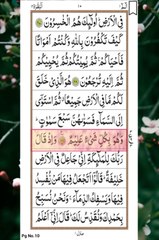 فِى الْاَرْضِ اُولٰٓئِكَ هُمُ الْخٰسِرُوْنَ
كَيْفَ تَكْفُرُوْنَ بِاللّٰهِ وَكُنْتُمْ اَمْوَاتًا
فَاَحْيَاكُمْ ثُمَّ يُمِيْتُكُمْ ثُمَّ يُحْيِيْكُمْ
ثُمَّ اِلَيْهِ تُرْجَعُوْنَ هُوَ الَّذِىْ خَلَقَ
لَكُمْ مَّا فِى الْاَرْضِ جَمِيْعًا ثُمَّ اسْتَوٰٓى
اِلَى السَّمَآءِ فَسَوّٰىهُنَّ سَبْعَ سَمٰوٰتٍ
وَهُوَ بِكُلِّ شَىْءٍ عَلِيْمٌ وَاِذْ قَالَ
رَبُّكَ لِلْمَلٰٓئِكَةِ اِنِّىْ جَاعِلٌ فِى الْاَرْضِ
خَلِيْفَةً قَالُوْٓا اَتَجْعَلُ فِيْهَا مَنْ يُّفْسِدُ
فِيْهَا وَيَسْفِكُ الدِّمَآءَ وَنَحْنُ نُسَبِّحُ
بِحَمْدِكَ وَنُقَدِّسُ لَكَ قَالَ اِنِّىْٓ اَعْلَمُ
Pg No.10